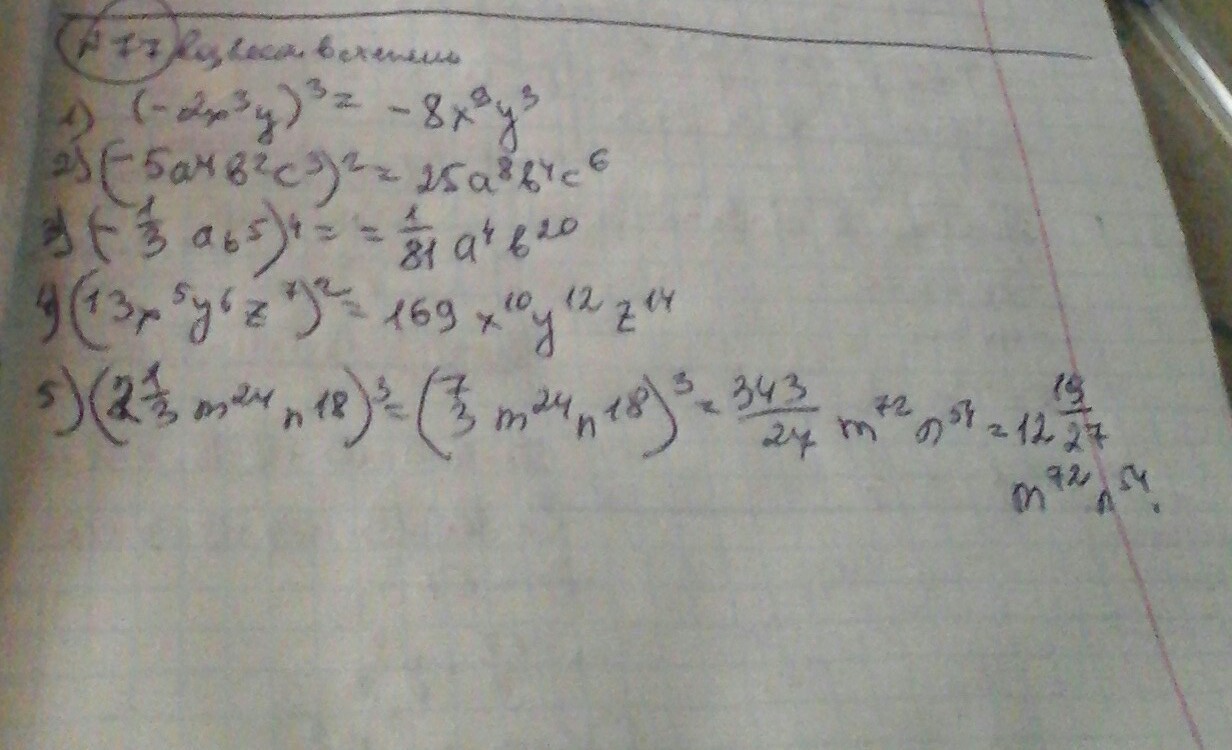 №77
1) (-2x³y)³ = -8x⁹y³
2) (-5a⁴b²c³)² = 25a⁸b⁴c⁶
3) (-1/3 ab⁵)⁴ = = 1/81 a⁴b²⁰
4) (13x⁵y⁶z⁷)² = 169x¹⁰y¹²z¹⁴
5) (2 1/3 m²⁴n¹⁸)³ = (7/3 m²⁴n¹⁸)³ = 343/27 m⁷²n⁵⁴ = 12 19/27
m⁷²n⁵⁴.